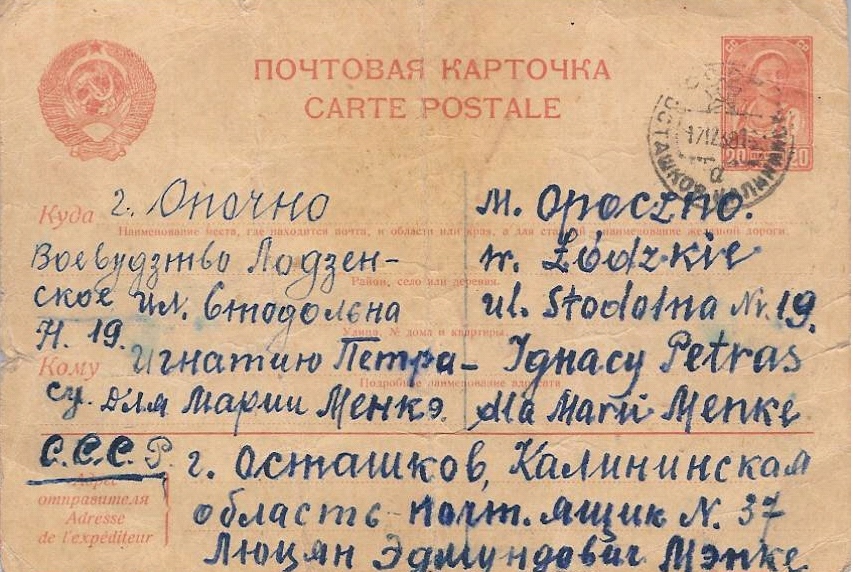 ПОЧТОВАЯ КАРТОЧКА
CARTE POSTALE
20 20
Куда г. Опочно
м. Opoczno.
Наименование места, где находится почта, и области или края, а для станций наименование железной дороги.
Воевудзтво Лодзен-
w. Łódzkie
Район, село или деревня.
ское ил. Стодольна
ul. Stodolna Nr. 19.
Улица, № дома и квартиры.
Н. 19.
Кому Игнатию Петра-
Ignacy Petras
Подробное наименование адресата
су. для Марии Менкэ.
dla Marii Menke
С.С.С.Р. г. Осташков, Калининская
Адрес
отправителя
Adresse
de l'expéditeur
область почт. ящик N. 37
Люцян Эдмундович Мэнке